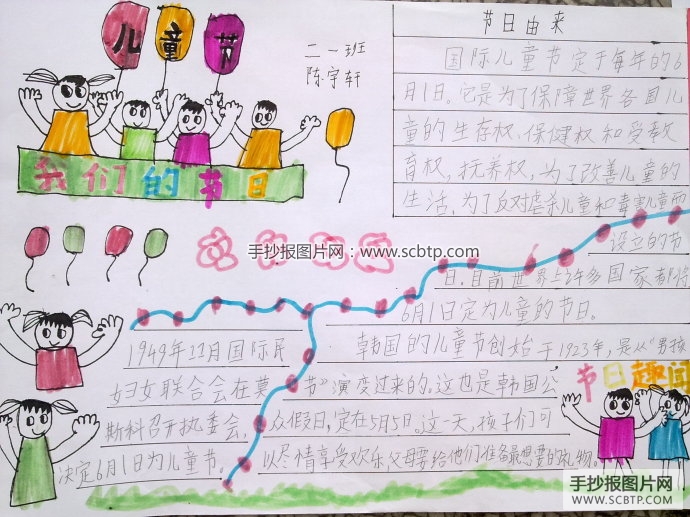 儿童节
二一班
陈宇轩
我们的节日
节日由来
国际儿童节定于每年的6
月1日。它是为了保障世界各国儿
童的生存权、保健权和受教
育权,抚养权,为了改善儿童的
生活,为了反对虐杀儿童和毒害儿童而
设立的节
日。目前世界上许多国家都将
6月1日定为儿童的节日。
手抄报图片网:www.scbtp.com
1949年11月国际民
妇女联合会在莫
斯科召开执委会,
决定6月1日为儿童节。
节日趣闻
韩国的儿童节创始于1923年,是从“男孩
节”演变过来的。这也是韩国公
众假日,定在5月5日。这一天,孩子们可
以尽情享受欢乐,父母要给他们准备最想要的礼物。
手抄报图片网
WWW.SCBTP.COM